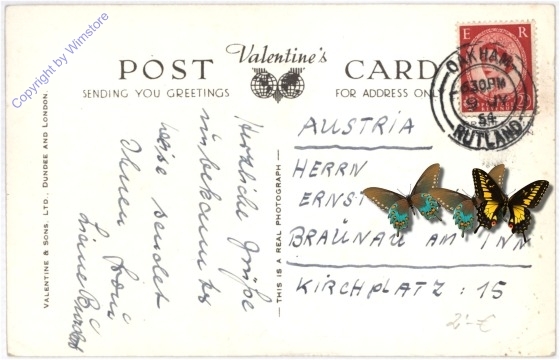 Copyright by Wimstore
POST Valentine's CARD
SENDING YOU GREETINGS
FOR ADDRESS ONLY
E R
OAKHAM
6.30PM
9 JY
54
RUTLAND
VALENTINE & SONS, LTD., DUNDEE AND LONDON.
THIS IS A REAL PHOTOGRAPH
Herzliche Grüße
unbekannter
weise sendet
Ihnen
AUSTRIA
HERRN
ERNST
BRAUNAU AM INN
KIRCHPLATZ : 15
2,-€